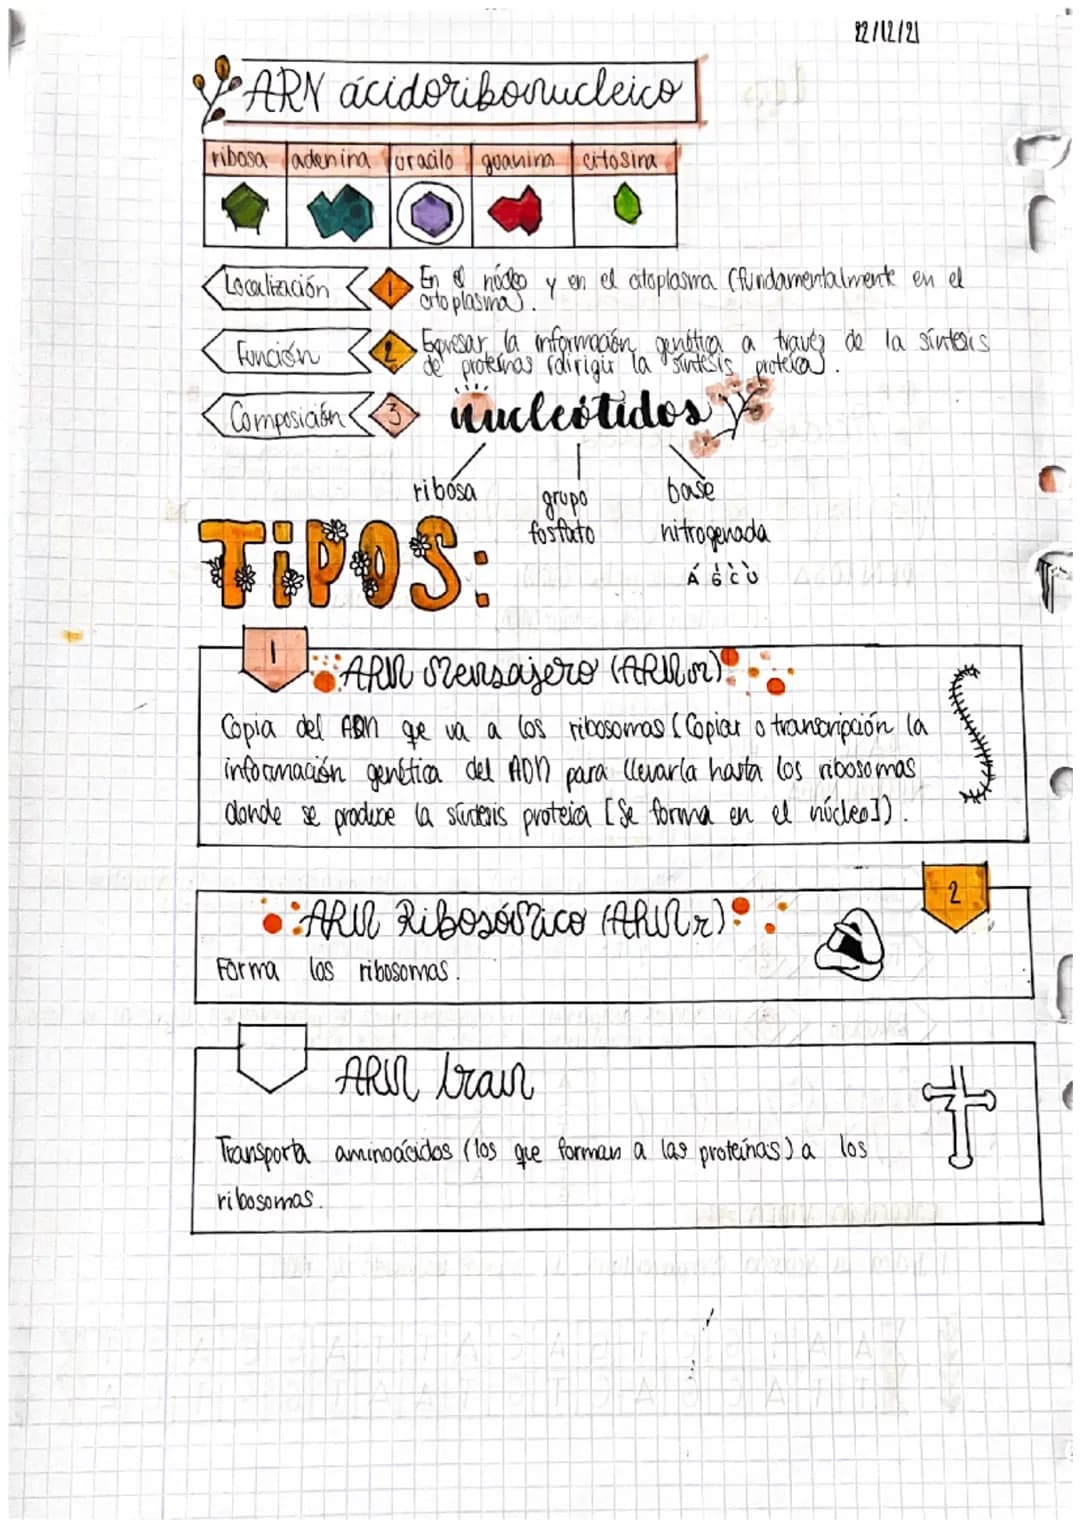 22/12/21
ARN ácidoribonucleico
ribosa adenina uracilo guanina citosina
Localización 1 En el núcleo y en el citoplasma (fundamentalmente en el
citoplasma).
Función 2 Expresar la información genética a través de la síntesis
de proteínas (dirigir la síntesis proteica).
Composición 3 nucleótidos
ribosa grupo base
fosfato nitrogenada
A G C U
TiPOS:
1
ARN Mensajero (ARNm)
Copia del ADN que va a los ribosomas (Copiar o transcripción la
información genética del ADN para llevarla hasta los ribosomas
donde se produce la síntesis proteica [Se forma en el núcleo]).
2
ARN Ribosómico (ARNr)
Forma los ribosomas.
ARN tran
Transporta aminoácidos (los que forman a las proteínas) a los
ribosomas.